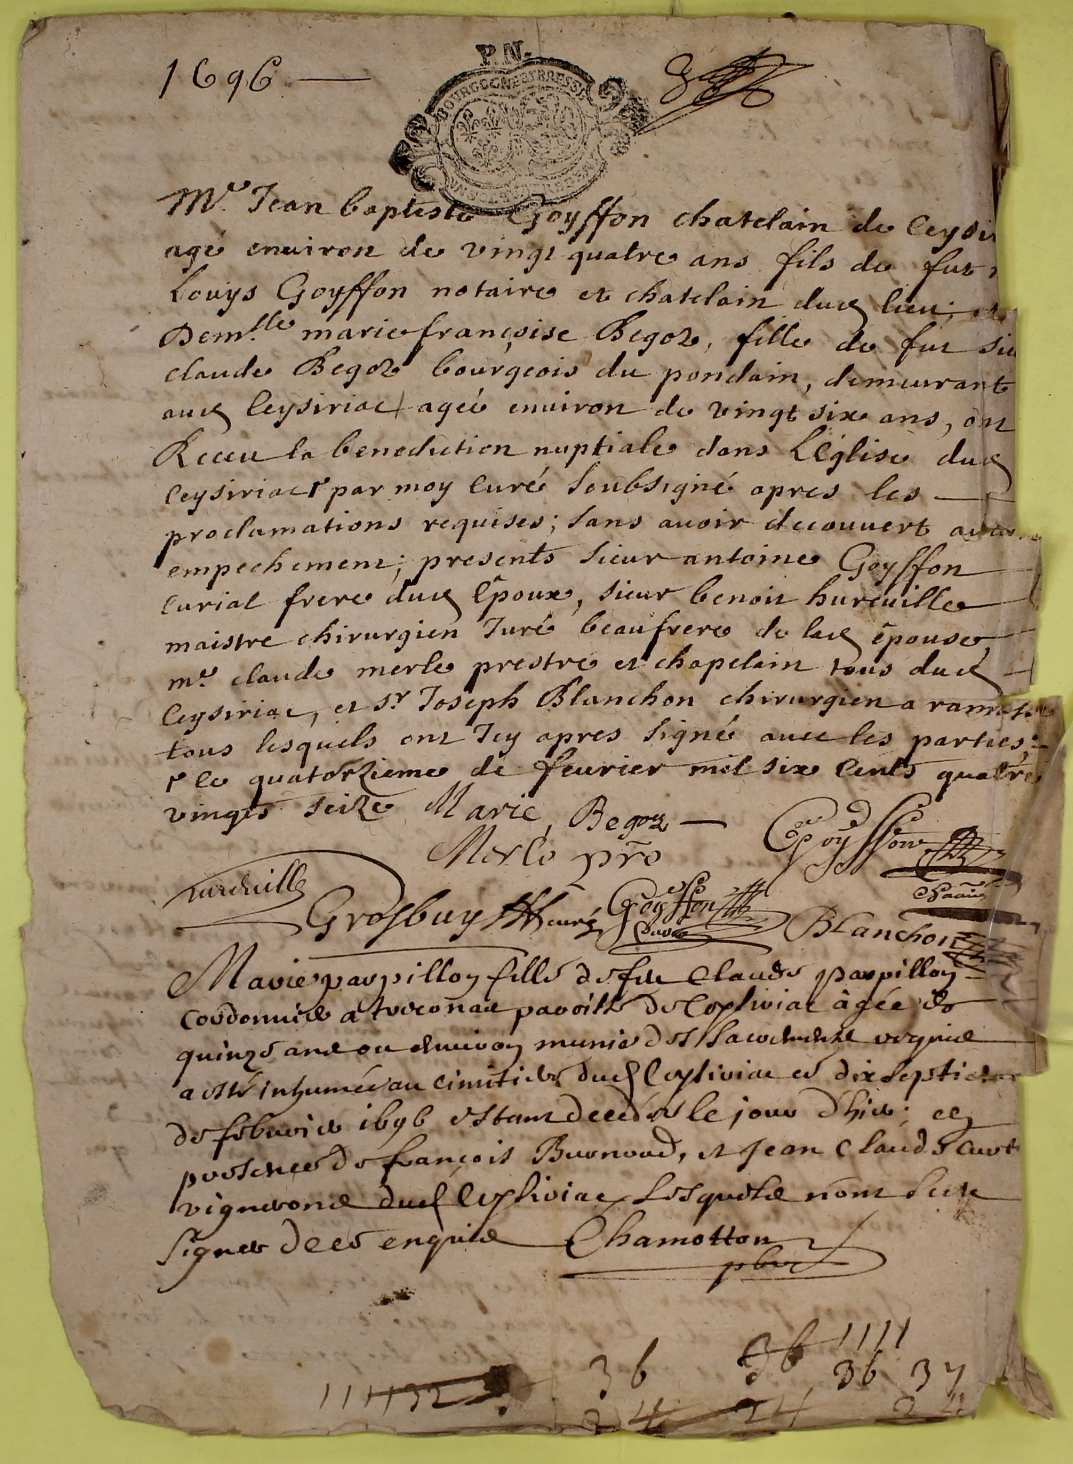 1696
P.N.
BOURGOGNE BRESSE
Mre Jean baptiste Goyffon chatelain de Ceysi
agé environ de vingt quatre ans fils de fut
Louys Goyffon notaire et chatelain dud lieu; et
Demlle marie françoise Begoz, fille de fut sie
claude Begoz bourgeois du pondain, demeurant
aud Ceysiriac agée environ de vingt six ans, ont
Receu la benediction nuptiale dans L'église dud
Ceysiriac par moy curé soubsigné apres les
proclamations requises; sans avoir decouvert aucun
empechement; presents sieur antoine Goyffon
curial frere dud Epoux, sieur benoit hureuille
maistre chirurgien Juré beaufrere de lad épouse,
mre claude merle prestre et chapelain tous dud
Ceysiriac, et sr Joseph Blanchon chirurgien a
tous lesquels ont Icy apres signé avec les parties,
le quatorzieme de feurier mil six cents quatre
vingts seize Marie Begoz Goyffon
Merle pre
hureuille
Grosbuy curé Goyffon Blanchon
Marie parpillon fille de feu Claude parpillon
Cordonnier a turconat paroisse de Ceysiriac âgée de
quinze ans ou environ munie des sacrements requis
a esté inhumée au cimitiere dud Ceysiriac ce dixseptieme
de febvrier 1696 estant decedée le jour d'hier; en
presence de françois Burnoud, et Jean Claude Curt
vignerons dud Ceysiriac lesquels n'ont sceu
signer de ce enquis Chamotton
pbre
1111
36 36 36 37
111132 24 24 24